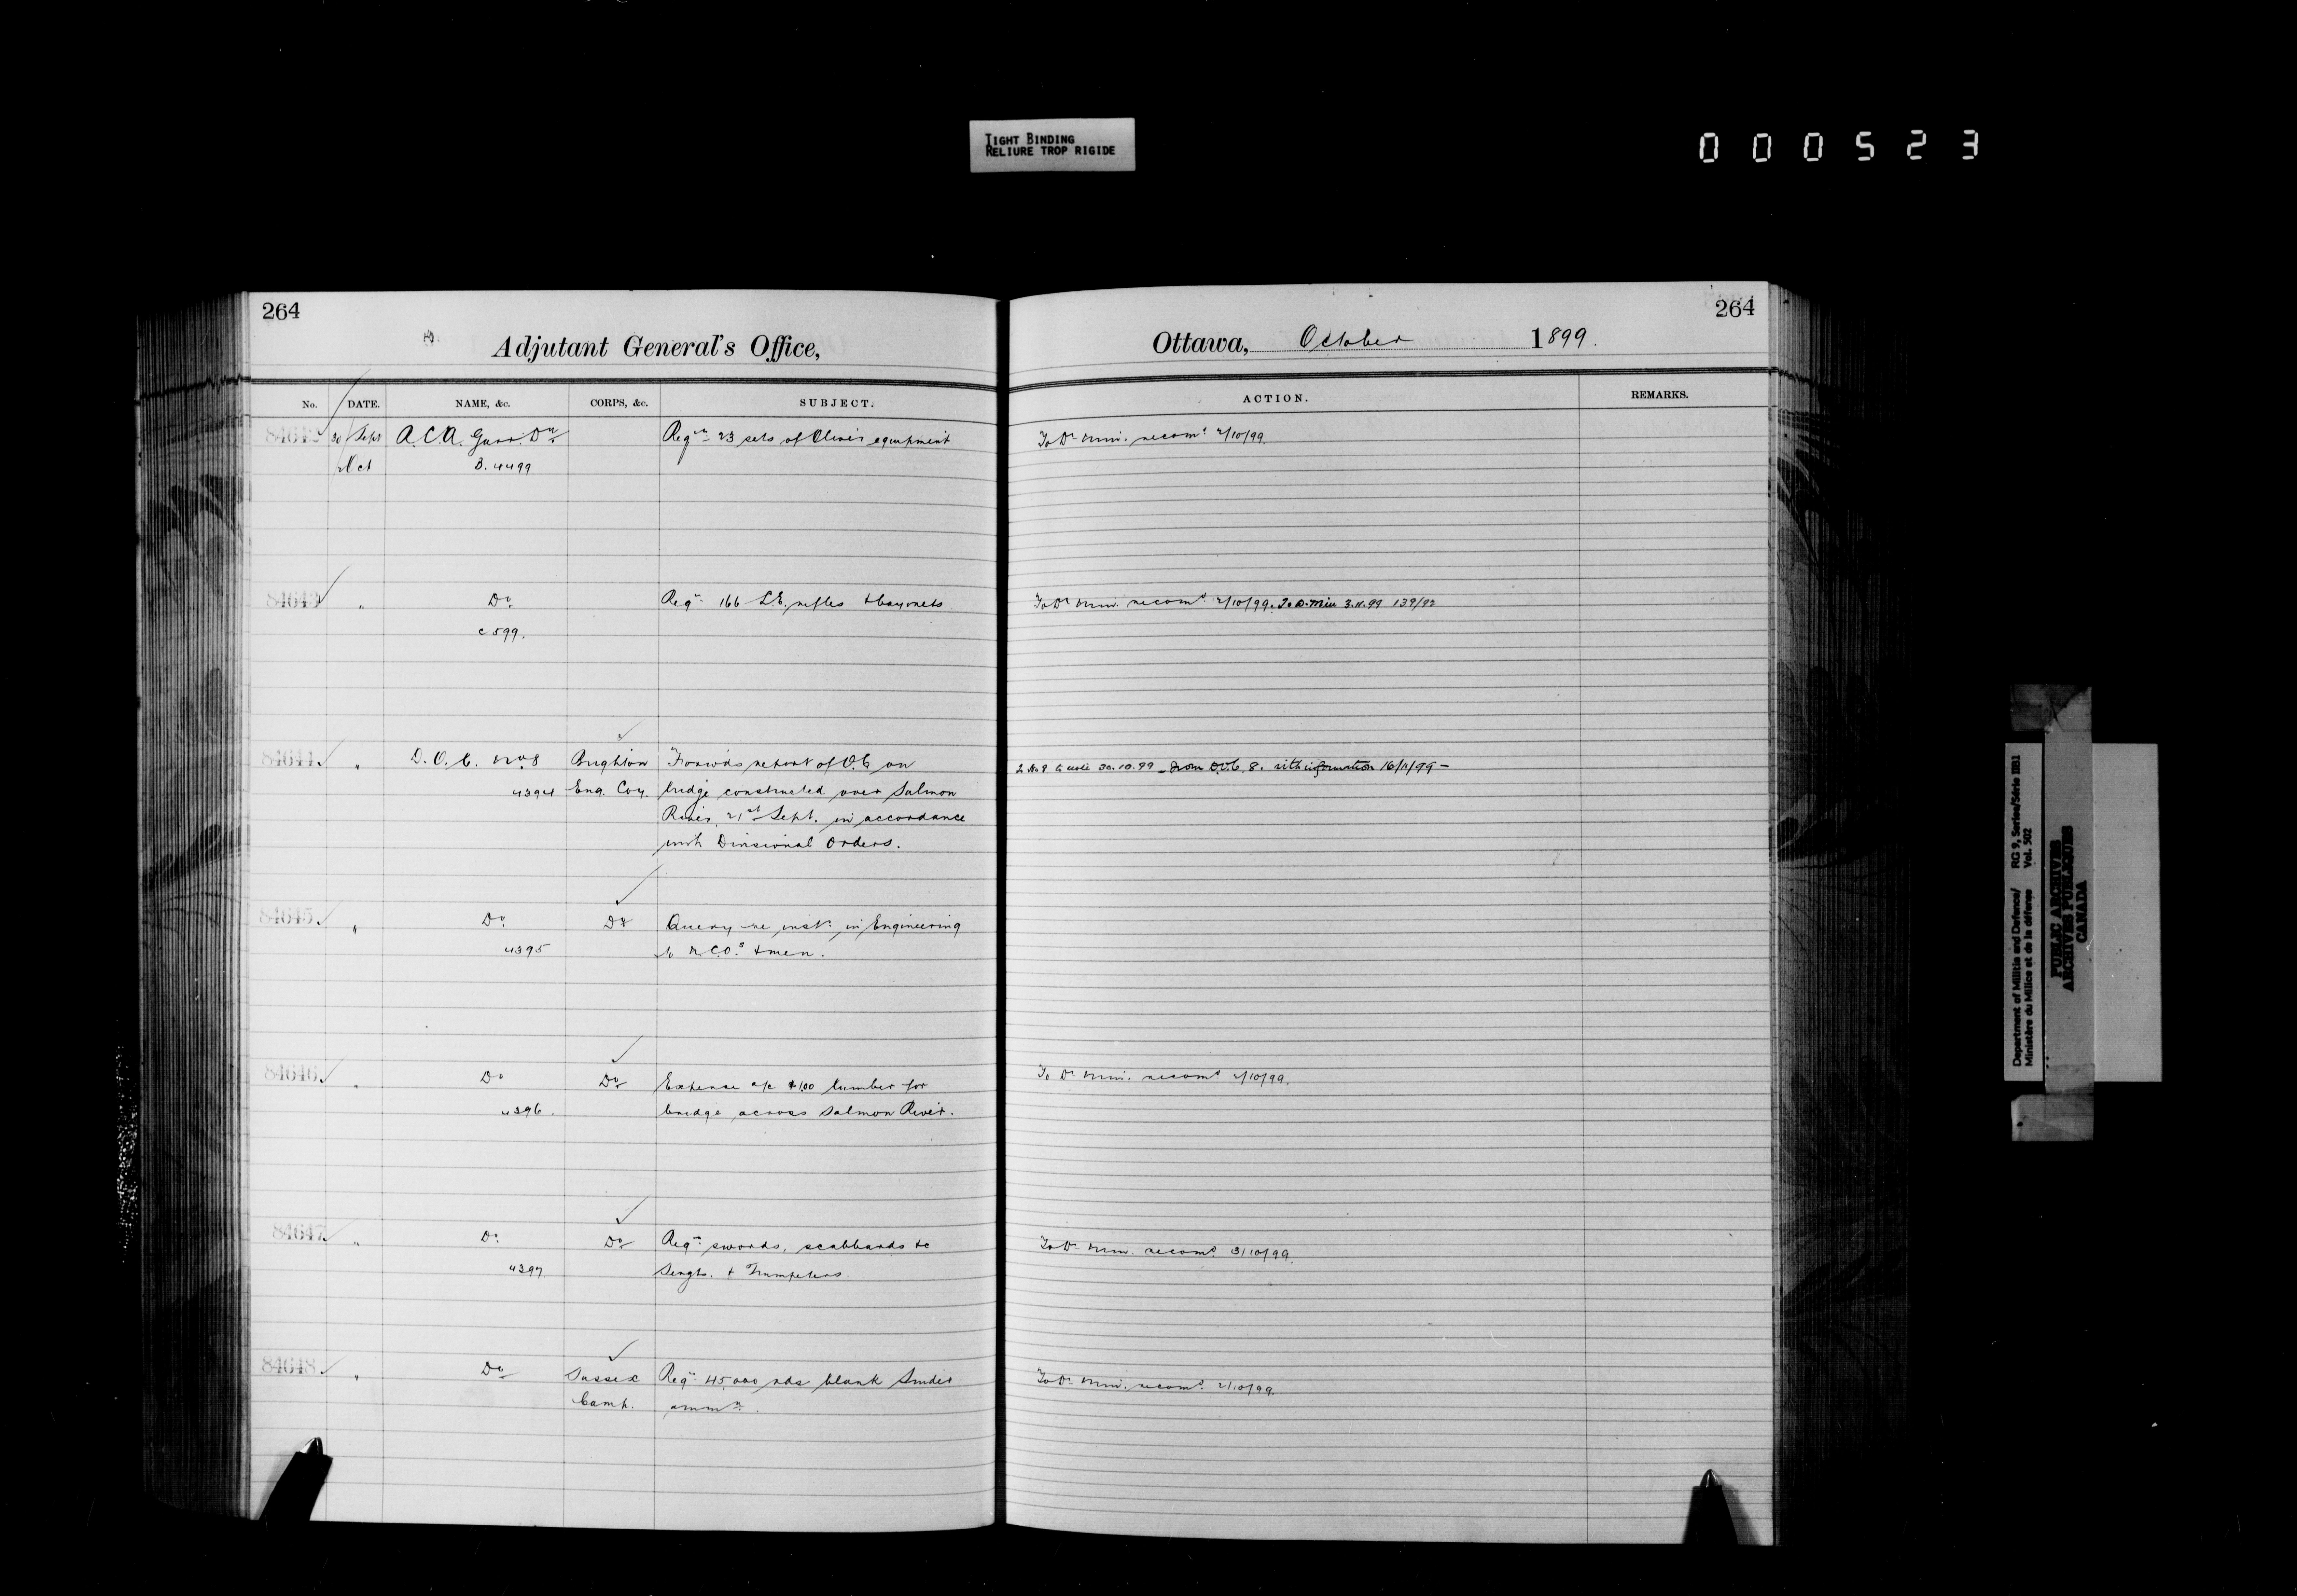 TIGHT BINDING
RELIURE TROP RIGIDE
000523
264
264
Adjutant General's Office,
Ottawa, October 1899.
No. DATE. NAME, &c. CORPS, &c. SUBJECT. ACTION. REMARKS.
84642 30 Sept A.C.A. Do Reqn 23 sets of Oliver equipment To Dr Min. recomd 2/10/99.
Oct B. 4499
84643 " Do Reqn 166 L.E. rifles & bayonets To Dr Min. recomd 2/10/99. To D. Min 3.11.99
C 599.
84644 " D.O.C. No 8 Brighton Forwds report of O.C. on 30.10.99 From D.O.C. 8. with information 16/11/99 -
4394 Eng. Coy. bridge constructed over Salmon
River, 21st Sept. in accordance
with Divisional Orders.
84645 " Do Do Query re instn in Engineering
4395 to N.C.O.s & men.
84646 " Do Do Expense a/c $100 lumber for To Dr Min. recomd 2/10/99.
4396. bridge across Salmon River.
84647 " Do Do Reqn swords, scabbards &c To Dr Min. recomd 3/10/99.
4397 Sergts. & Trumpeters.
84648 " Do Sussex Reqn 45,000 rds blank Snider To Dr Min. recomd 2/10/99.
Camp. ammn.
Department of Militia and Defence/ RG 9, Series/Série IIB1
Ministère du Milice et de la défense Vol. 502
PUBLIC ARCHIVES
ARCHIVES PUBLIQUES
CANADA